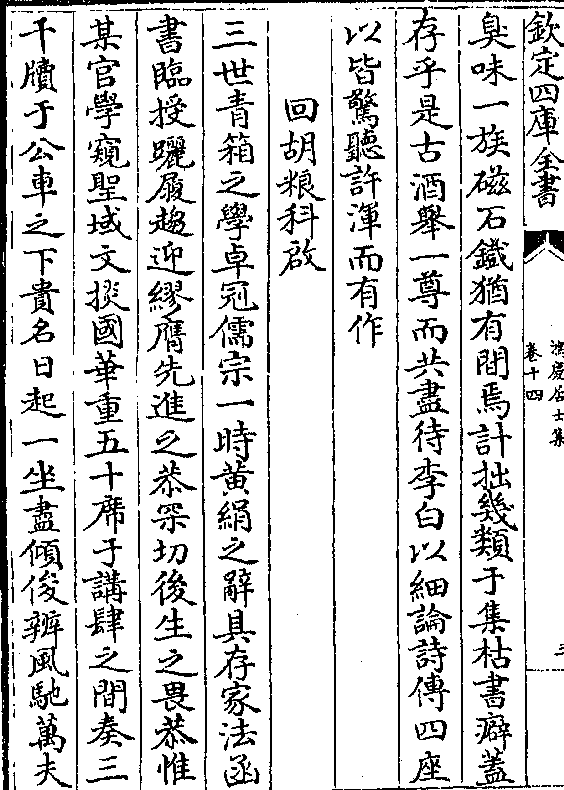 欽定四庫全書
鴻慶居士集
卷十四
臭味一族磁石鐵猶有間焉計拙幾類于集枯書癖蓋
存乎是古酒舉一尊而共盡待李白以細論詩傳四座
以皆驚聽許渾而有作
回胡粮科啟
三世青箱之學卓冠儒宗一時黄絹之辭具存家法函
書臨授躧履趨迎繆膺先進之恭罙切後生之畏恭惟
某官學窺聖域文掞國華重五十席于講肆之間奏三
千牘于公車之下貴名日起一坐盡傾俊辨風馳萬夫